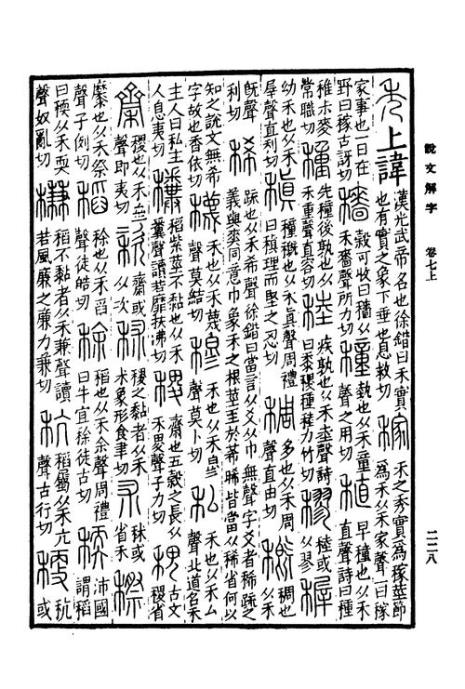 說文解字 卷七上 二二八
秀 上諱漢光武帝名也徐鍇曰禾實也有實之象下垂也息救切 稼 禾之秀實爲稼莖節爲禾从禾家聲一曰稼
家事也一曰在野曰稼古訝切 穡 穀可收曰穡从禾嗇聲所力切 穜 埶也从禾童聲之用切 稙 早穜也从禾直聲詩曰稙
稚尗麥常職切 種 先穜後孰也从禾重聲直容切 稑 疾孰也从禾坴聲詩曰黍稷種稑力竹切 穋 稑或从翏 稺
幼禾也从禾屖聲直利切 稹 穜穊也从禾真聲周禮曰稹理而堅之忍切 稠 多也从禾周聲直由切 穊 稠也从禾
旣聲几利切 稀 疏也从禾希聲徐鍇曰當言从爻从巾無聲字爻者稀疏之義與爽同意巾象禾之根莖至於莃晞皆當从稀省何以
知之說文無希字故也香依切 𥣫 禾也从禾蔑聲莫結切 穆 禾也从禾㣎聲莫卜切 私 禾也从禾厶聲北道名禾
主人曰私主人息夷切 𥤗 稻紫莖不黏也从禾糞聲讀若靡扶沸切 稷 𪗉也五穀之長从禾畟聲子力切 𥞪 古文稷省
𪗉 稷也从禾𠫼聲即夷切 秶 𪗉或从次 秫 稷之黏者从禾朮象形食聿切 朮 秫或省禾 穄
𪎭也从禾祭聲子例切 稻 稌也从禾舀聲徒皓切 稌 稻也从禾余聲周禮曰牛宜稌徒古切 稬 沛國謂稻
曰稬从禾耎聲奴亂切 稴 稻不黏者从禾兼聲讀若風廉之廉力兼切 秔 稻屬从禾亢聲古行切 稉 秔或